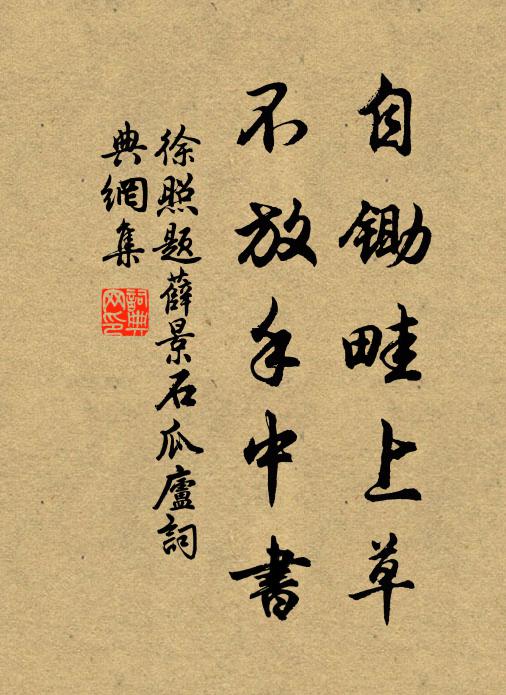 自鋤畦上草
不放手中書
徐照題薛景石瓜廬詞
典網集
詞典
网印